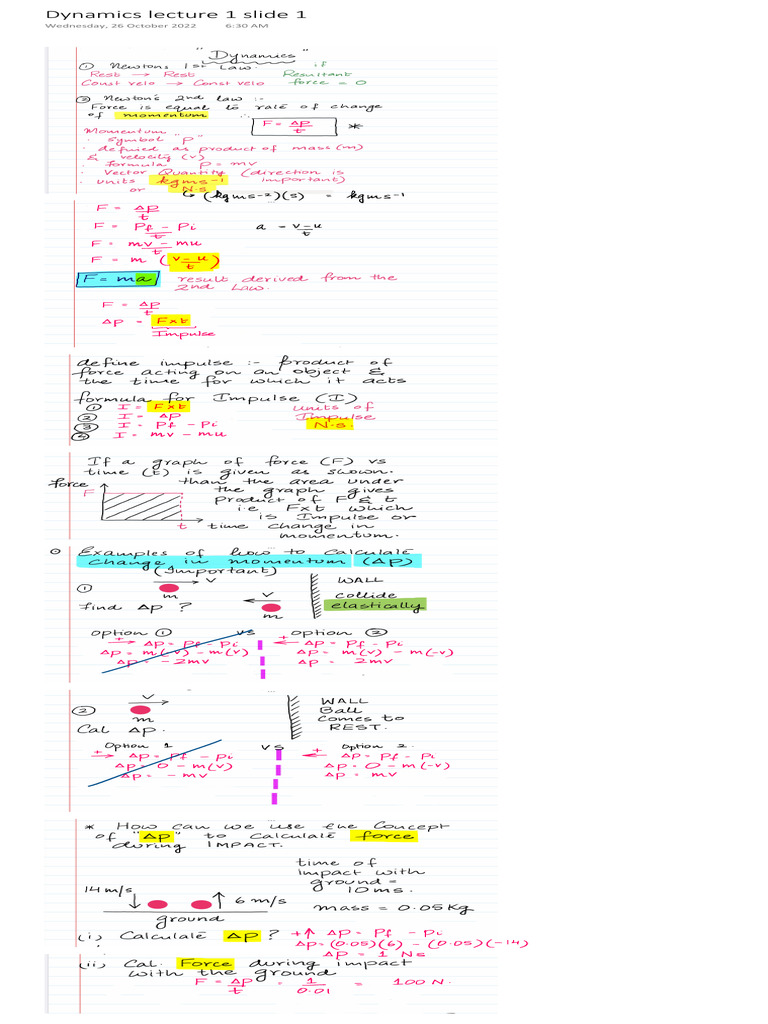 Dynamics lecture 1 slide 1
Wednesday, 26 October 2022 6:30 AM
"Dynamics"
① Newtons 1st Law. if
Rest → Rest Resultant
Const velo → Const velo force = 0
② Newton's 2nd law :-
Force is equal to rate of change
of momentum ∴ F = Δp/t *
Momentum
· Symbol "p"
· defined as product of mass (m)
& velocity (v)
· formula p = mv
· Vector Quantity (direction is
important)
· units kgms-1
or N.s
↳ (kgms-2)(s) = kgms-1
F = Δp/t
F = Pf - Pi/t a = v-u/t
F = mv - mu/t
F = m (v-u/t)
F = ma result derived from the
2nd Law.
F = Δp/t
Δp = F×t
Impulse
define impulse :- Product of
force acting on an object &
the time for which it acts
formula for Impulse (I)
① I = F×t units of
② I = Δp Impulse
③ I = Pf - Pi N.s.
④ I = mv - mu
If a graph of force (F) vs
time (t) is given as shown.
force than the area under
F the graph gives
Product of F & t
i.e F×t which
is Impulse or
t time change in
momentum.
Examples of how to Calculate
change in momentum (Δp)
(Important)
① v WALL
m collide
find Δp ? v elastically
m
option ① vs option ②
+ → Δp = Pf - Pi ← + Δp = Pf - Pi
Δp = m(-v) - m(v) Δp = m(v) - m(-v)
Δp = -2mv Δp = 2mv
② v WALL
m Ball
comes to
Cal Δp. REST.
Option 1 vs Option 2.
+ → Δp = Pf - Pi ← + Δp = Pf - Pi
Δp = 0 - m(v) Δp = 0 - m(-v)
Δp = -mv Δp = mv
* How can we use the Concept
of "Δp" to Calculate force
during IMPACT.
time of
impact with
ground =
10ms.
14 m/s ↓ ↑ 6 m/s
mass = 0.05Kg
ground
(i) Calculate Δp ? +↑ Δp = Pf - Pi
Δp = (0.05)(6) - (0.05)(-14)
Δp = 1 Ns
(ii) Cal. Force during impact
with the ground
F = Δp/t = 1/0.01 = 100 N.